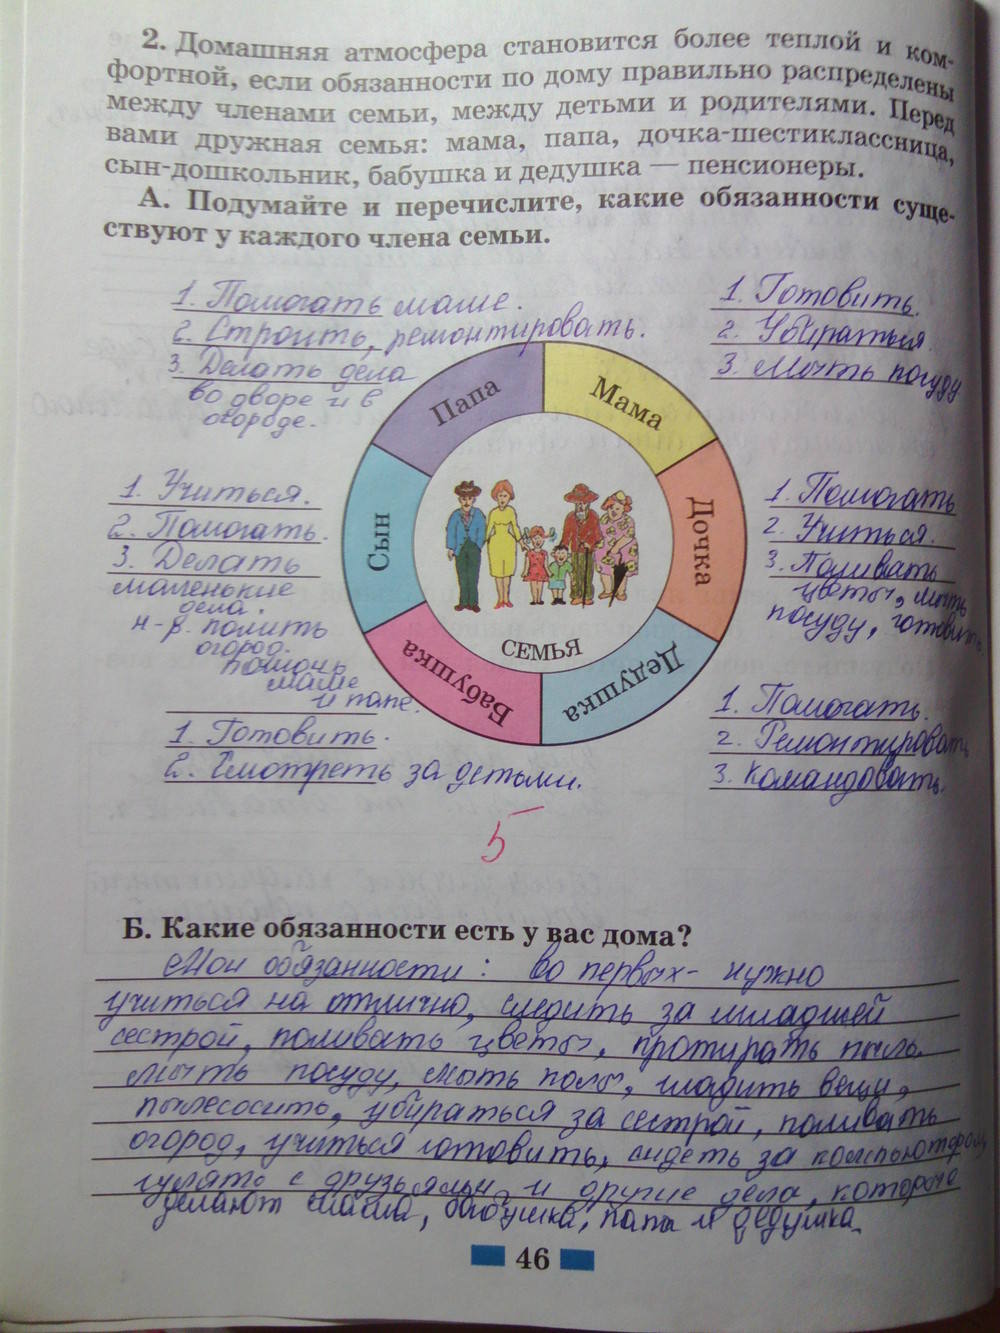 2. Домашняя атмосфера становится более теплой и ком-
фортной, если обязанности по дому правильно распределены
между членами семьи, между детьми и родителями. Перед
вами дружная семья: мама, папа, дочка-шестиклассница,
сын-дошкольник, бабушка и дедушка — пенсионеры.
А. Подумайте и перечислите, какие обязанности суще-
ствуют у каждого члена семьи.
1. Помогать маме.
2. Строить, ремонтировать.
3. Делать дела
во дворе и в
огороде.
1. Готовить.
2. Убираться.
3. Мыть посуду
Папа
Мама
Сын
Дочка
Бабушка
Дедушка
СЕМЬЯ
1. Учиться.
2. Помогать.
3. Делать
маленькие
дела.
н-р. полить
огород.
помочь
маме
и папе.
1. Помогать
2. Учиться.
3. Поливать
цветы, мыть
посуду, готовить.
1. Готовить.
2. Смотреть за детьми.
1. Помогать.
2. Ремонтировать
3. Командовать.
5
Б. Какие обязанности есть у вас дома?
Мои обязанности: во первых- нужно
учиться на отлично, следить за младшей
сестрой, поливать цветы, протирать пыль,
мыть посуду, мыть полы, гладить вещи,
пылесосить, убираться за сестрой, поливать
огород, учиться готовить, сидеть за компьютером,
гулять с друзьями и другие дела, которые
делают мама, бабушка, папа и дедушка
46